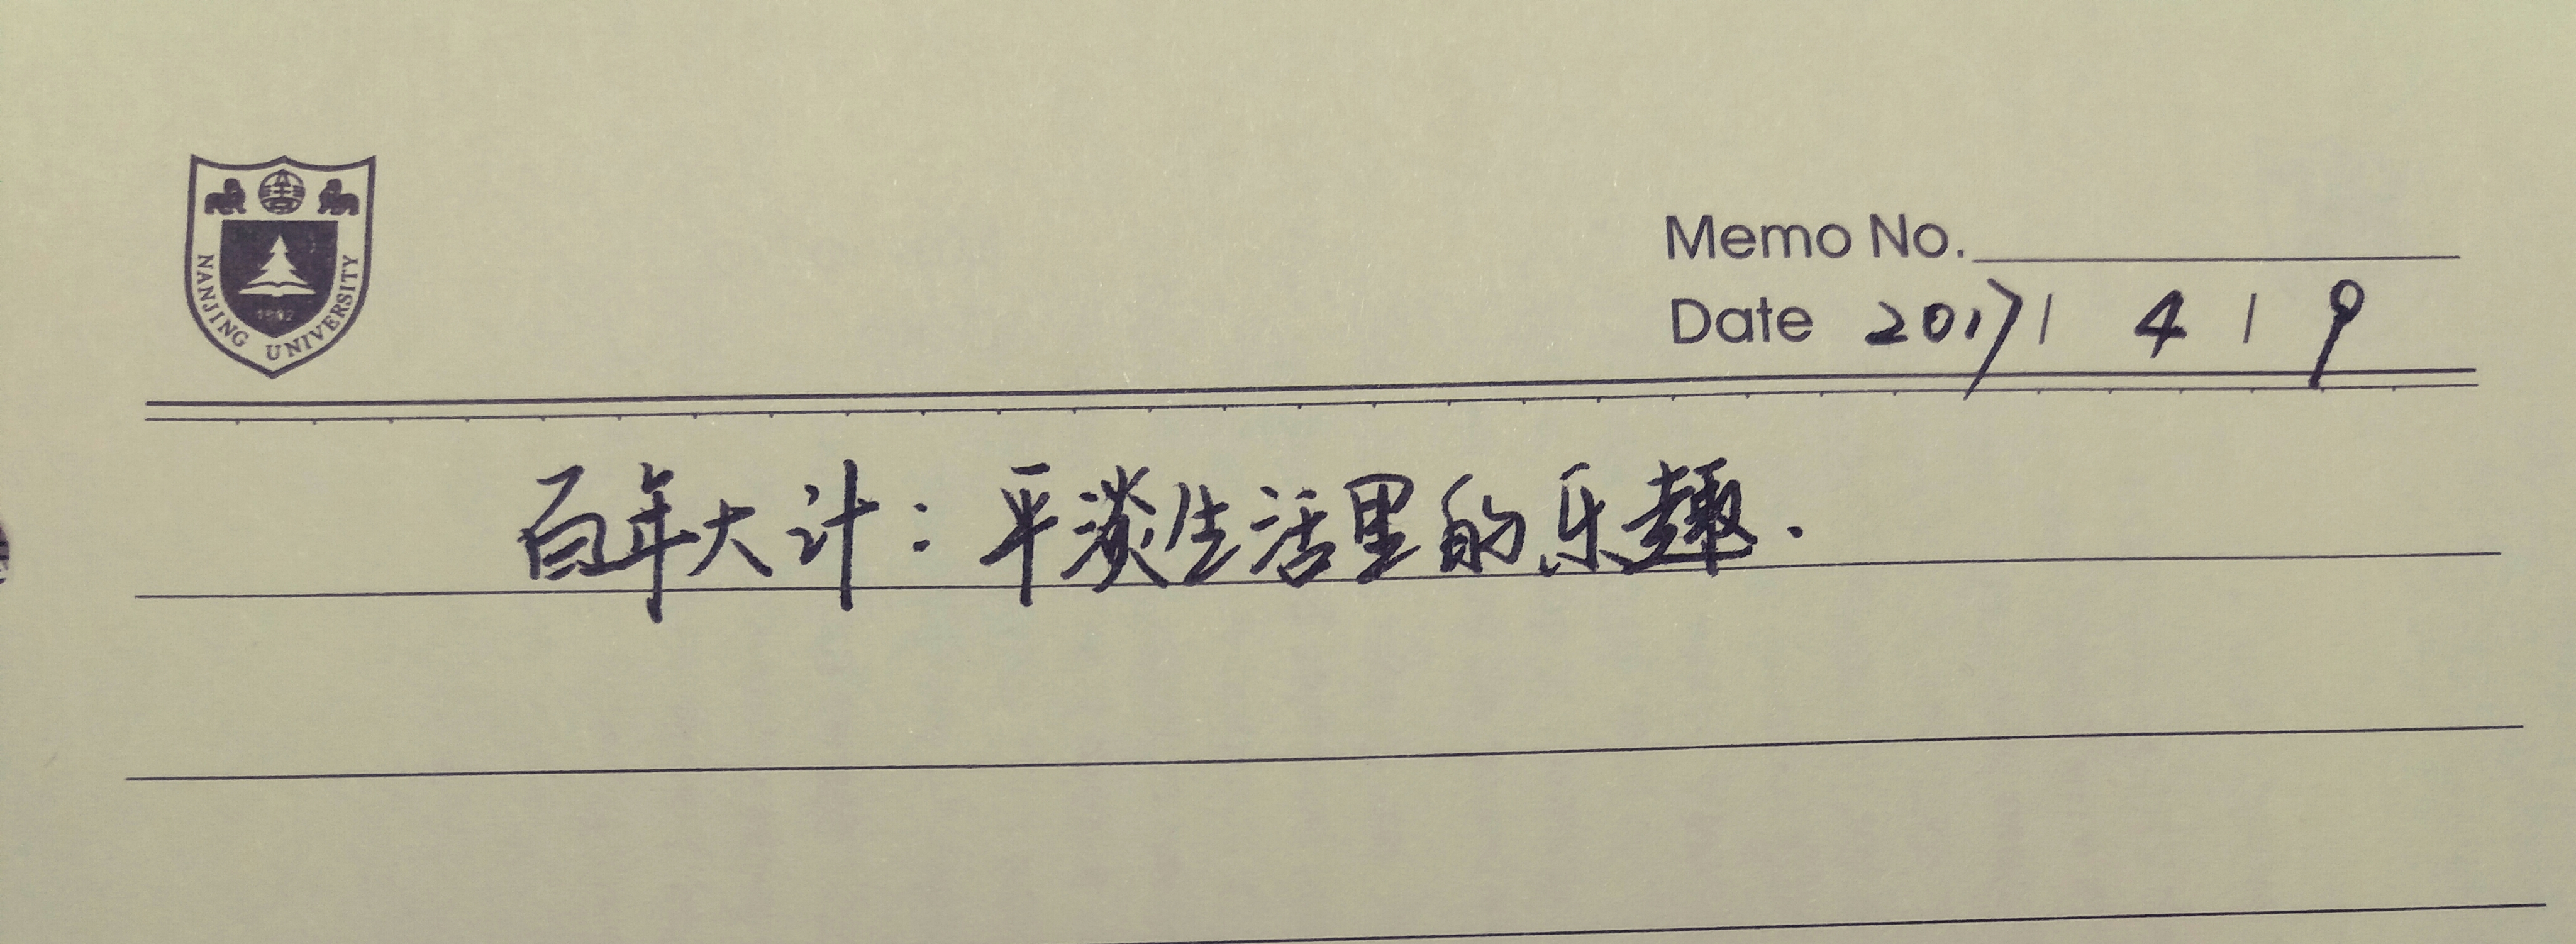 NANJING UNIVERSITY
1902
Memo No.
Date 2017 / 4 / 9
百年大计：平淡生活里的乐趣.